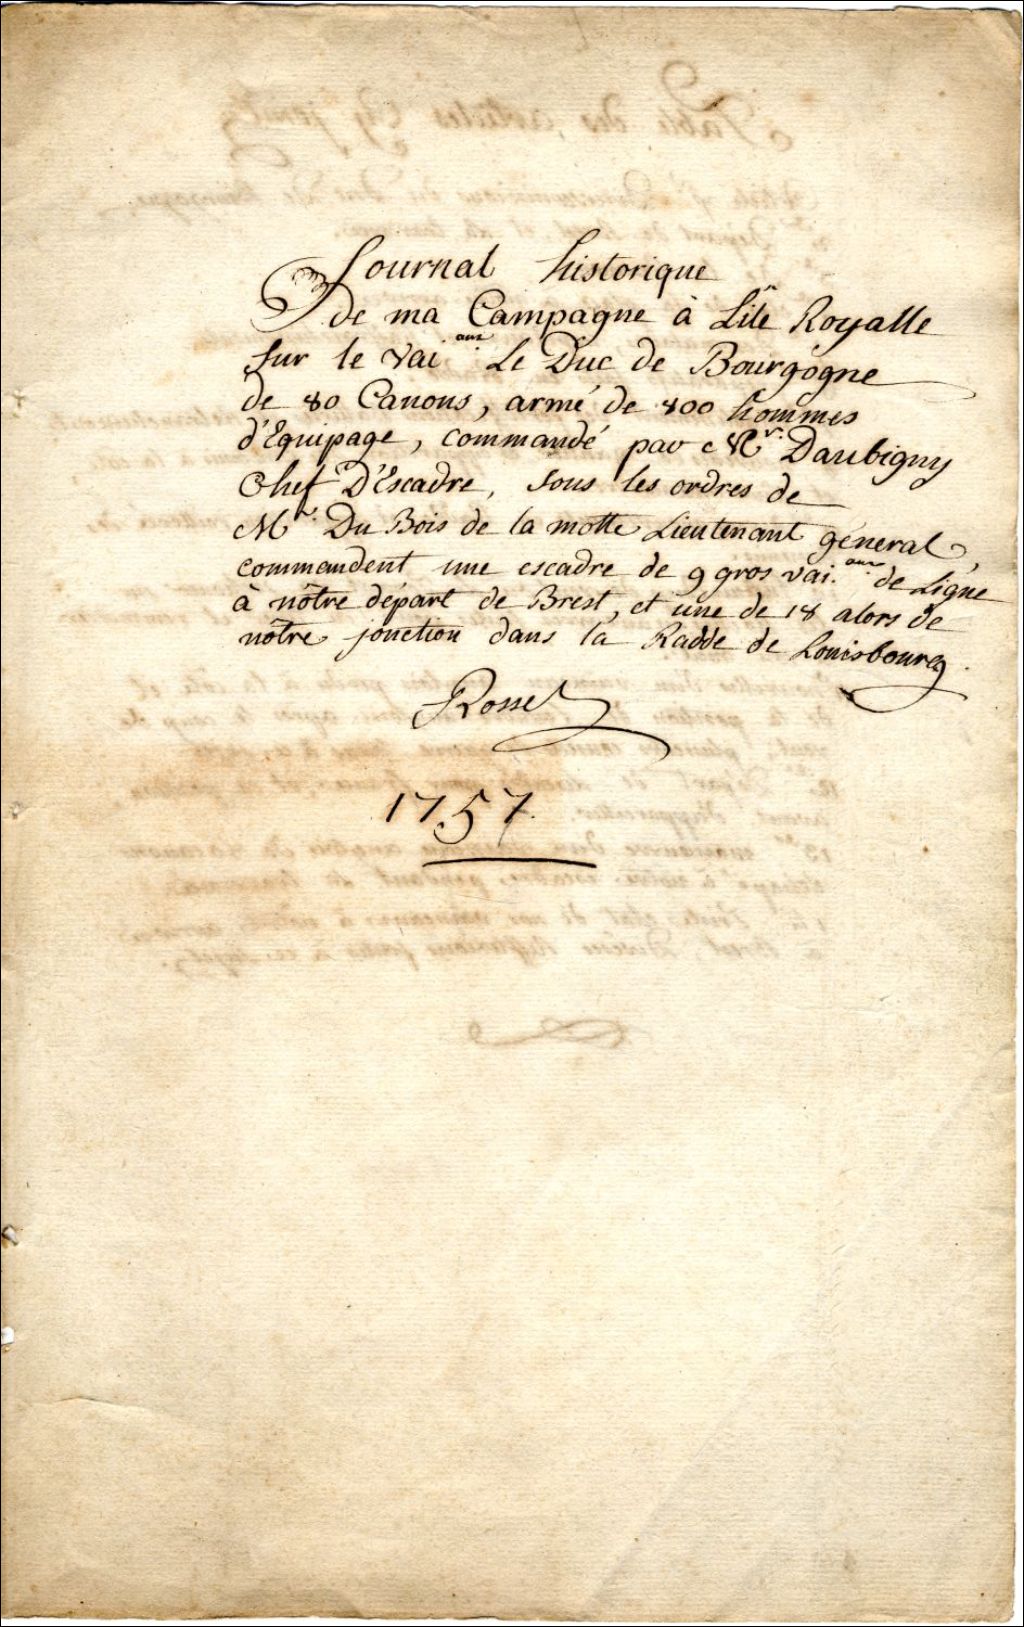 Journal historique
De ma Campagne à Lîle Royalle
sur le vai.aux Le Duc de Bourgogne
de 80 Canons, armé de 800 hommes
d'Equipage, commandé par Mr. Daubigny
Chef D'Escadre, sous les ordres de
Mr. Du Bois de la motte Lieutenant géneral
commandent une escadre de 9 gros vai.aux de Ligne
à nôtre départ de Brest, et une de 18 alors de
nôtre jonction dans la Radde de Louisbourg.
Rossel
1757.